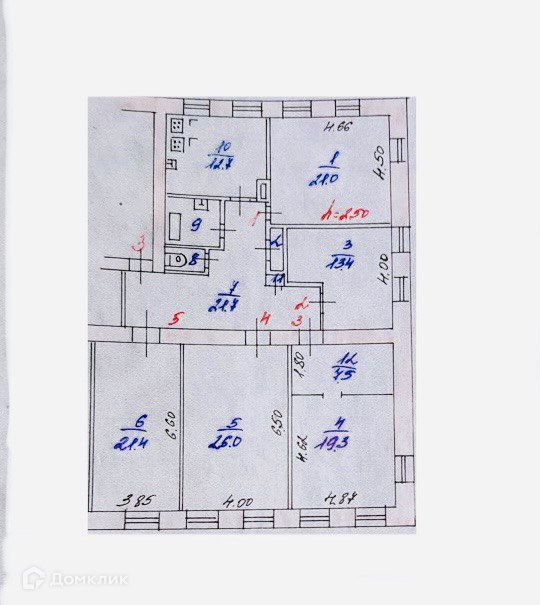 10
12.7
4.66
1
21.0
4.50
h=2.50
1
9
2
3
13.4
4.00
3
8
11
7
21.7
2
3
5
4
12
7.5
1.80
6
21.4
6.60
5
26.0
6.50
4
19.3
4.62
3.85
4.00
4.87
Домклик